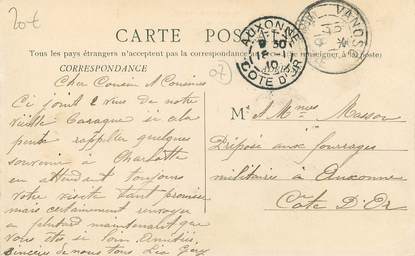 20€
CARTE POS
Tous les pays étrangers n'acceptent pas la correspondance au se renseigner à la poste
CORRESPONDANCE
02
AUXONNE
9 30
18 - 1
10
COTE D'OR
VANOS
Cher Cousin et Cousines
Ci joint 2 vues de notre
vieille Casaque si cela
peut rappeller quelques
souvenir à Charlotte
en attendant toujours
votre visite tant promise
mais certainement renvoyée
a plutard maintenant que
vous êtes si loin Amitiés
Sincères de nous tous Léa
M A Mme Masson
Préposé aux fourrages
militaires à Auxonne
Côte D'Or